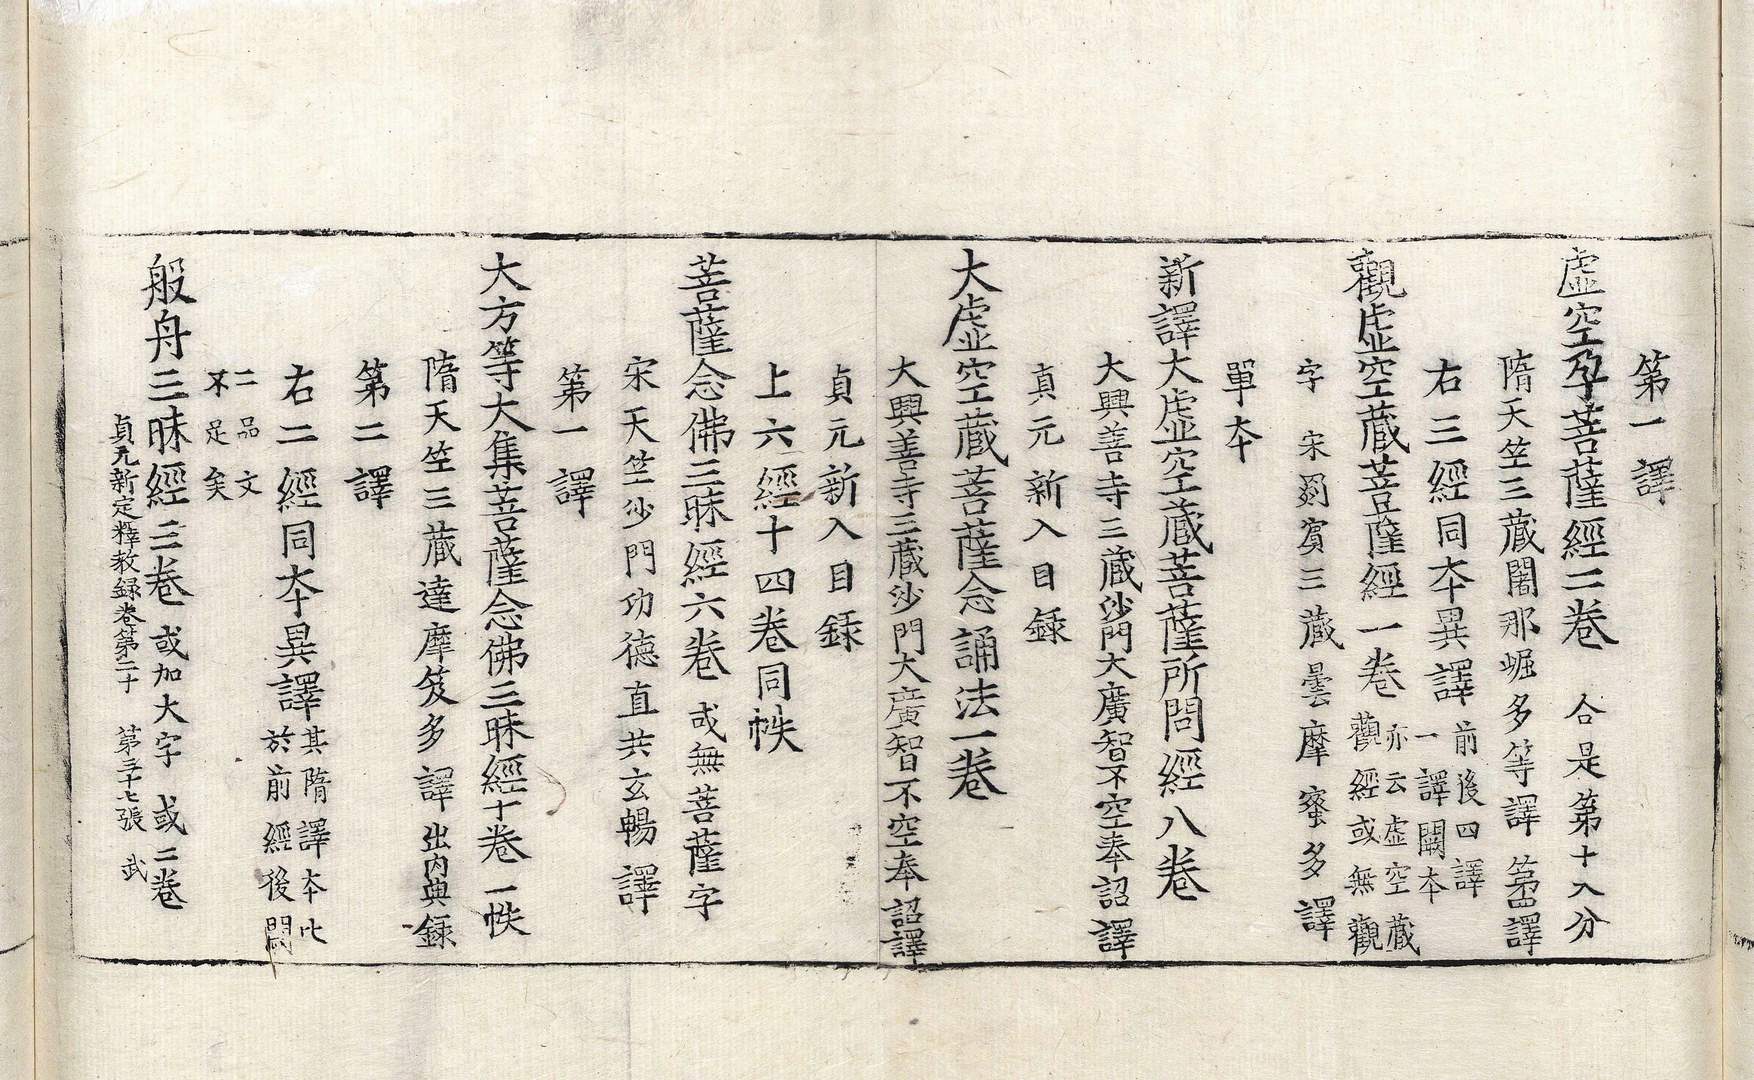 第一譯
虛空孕菩薩經二卷　合是第十八分
隋天竺三藏闍那崛多等譯　第四譯
右三經同本異譯前後四譯一譯闕本
觀虛空藏菩薩經一卷亦云虛空藏觀經或無觀
字　宋罽賓三藏曇摩蜜多譯
單本
新譯大虛空藏菩薩所問經八卷
大興善寺三藏沙門大廣智不空奉詔譯
貞元新入目錄
大虛空藏菩薩念誦法一卷
大興善寺三藏沙門大廣智不空奉詔譯
貞元新入目錄
上六經十四卷同帙
菩薩念佛三昧經六卷　或無菩薩字
宋天竺沙門功德直共玄暢譯
第一譯
大方等大集菩薩念佛三昧經十卷　一帙
隋天竺三藏達摩笈多譯出內典錄
第二譯
右二經同本異譯其隋譯本比於前經後闕
二品文不足矣
般舟三昧經三卷　或加大字　或二卷
貞元新定釋教錄卷第二十　第三十七張　武